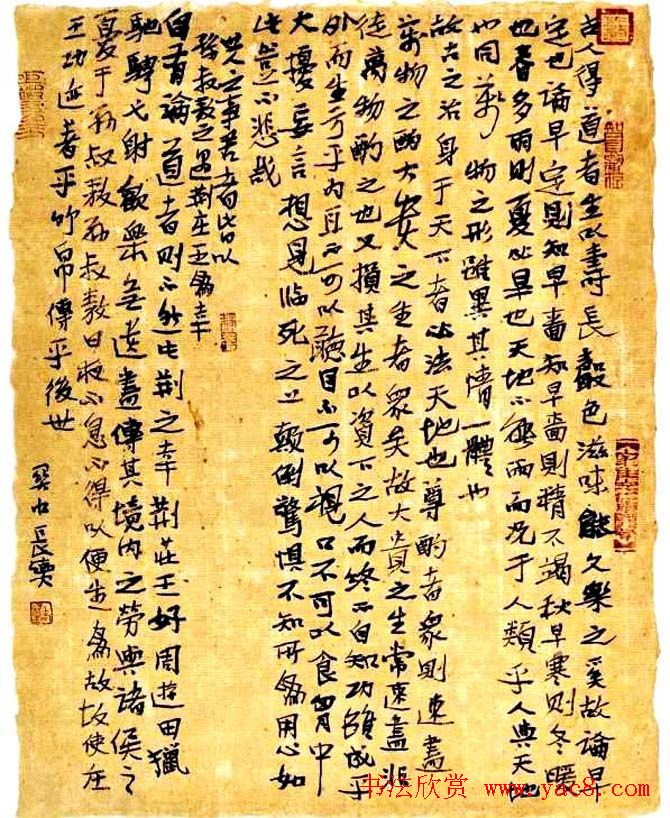 古人得道者生以壽長聲色滋味能久樂之奚故論早
定也論早定則知早嗇知早嗇則精不竭秋早寒則冬暖
也春多雨則夏必旱也天地不能兩而况于人類乎人與天地
也同萬物之形雖異其情一體也
故古之治身于天下者必法天地也尊酌者衆則速盡
萬物之酌大貴之生者衆矣故大貴之生常速盡非
徒萬物酌之也又損其生以資天下之人而終不自知功雖成乎
外而生亏乎内耳不可以聽目不可以視口不可以食胃中
大擾妄言想見临死之上顛倒驚惧不知所為用心如
此豈不悲哉
世之事君者皆以
孫叔敖之遇荆庄王為幸
自有論道者則不然此荆之幸荆莊王好周遊田獵
馳騁弋射歡樂無遺盡傅其境内之勞與諸侯之
憂于孫叔敖孫叔敖日夜不息不得以便生為故故使庄
王功迹著乎竹帛傳乎後世
书法欣赏 www.yac8.com